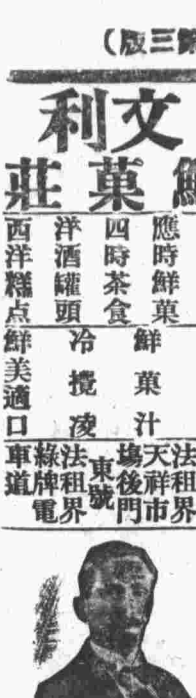 三版
文利
鮮菓莊
應時鮮菓
四時茶食
洋酒罐頭
西洋糕点
鮮菓汁
冷攪凌
鮮美適口
法租界
天祥市
塲後門
東號
法租界
綠牌電
車道